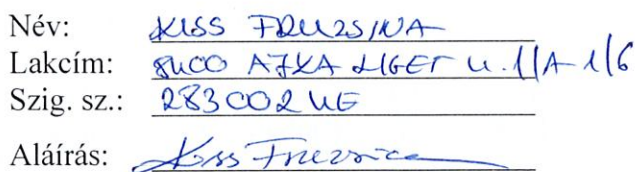 Név: KISS FRUZSINA
Lakcím: 8400 AJKA LIGET u. 1/A 1/6
Szig. sz.: 283002 UE
Aláírás: Kiss Fruzsina